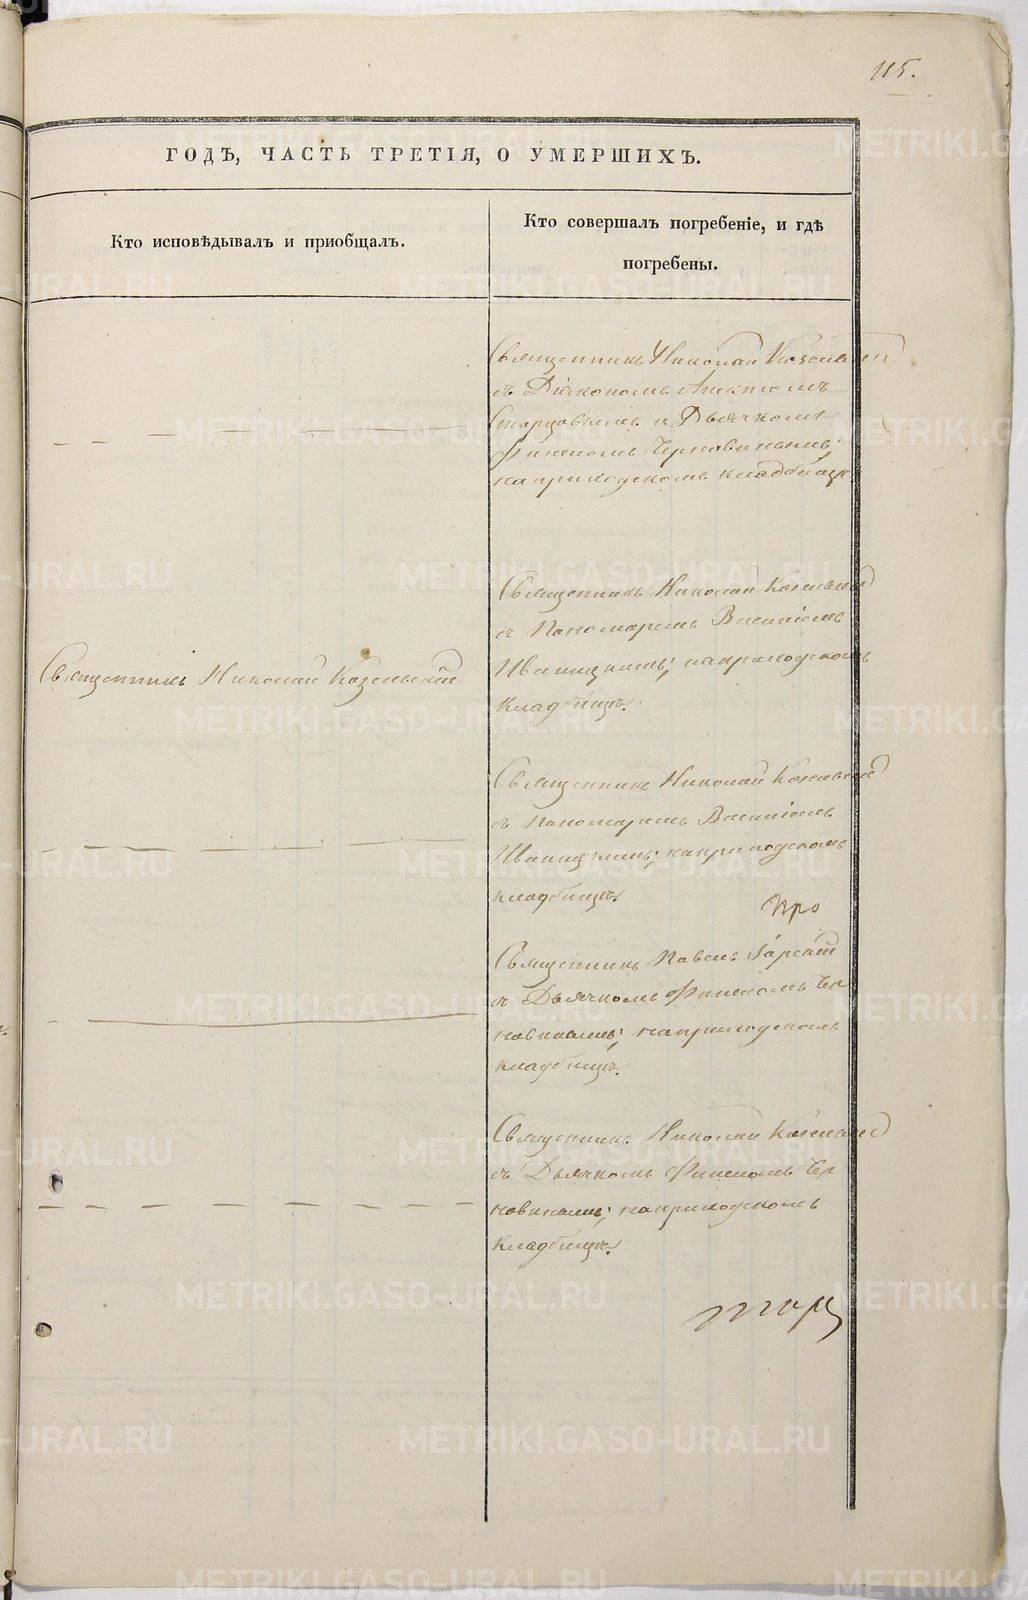 115.
ГОДЪ, ЧАСТЬ ТРЕТІЯ, О УМЕРШИХЪ.
Кто исповѣдывалъ и приобщалъ.
Кто совершалъ погребеніе, и гдѣ
погребены.
Священникъ Николай
съ Діакономъ
и Дьячкомъ
на приходскомъ кладбищѣ
Священникъ Николай Козельскій
Священникъ Николай Козельскій
съ Пономаремъ Василіемъ
Иваницкимъ; на приходскомъ
кладбищѣ.
Священникъ Николай Козельскій
съ Пономаремъ Василіемъ
Иваницкимъ; на приходскомъ
кладбищѣ.
Про
Священникъ Павелъ
съ Дьячкомъ Финеесомъ Чер
новинымъ; на приходскомъ
кладбищѣ.
Священникъ Николай Козельскій
съ Дьячкомъ Финеесомъ Чер
новинымъ; на приходскомъ
кладбищѣ.
METRIKI.GASO-URAL.RU